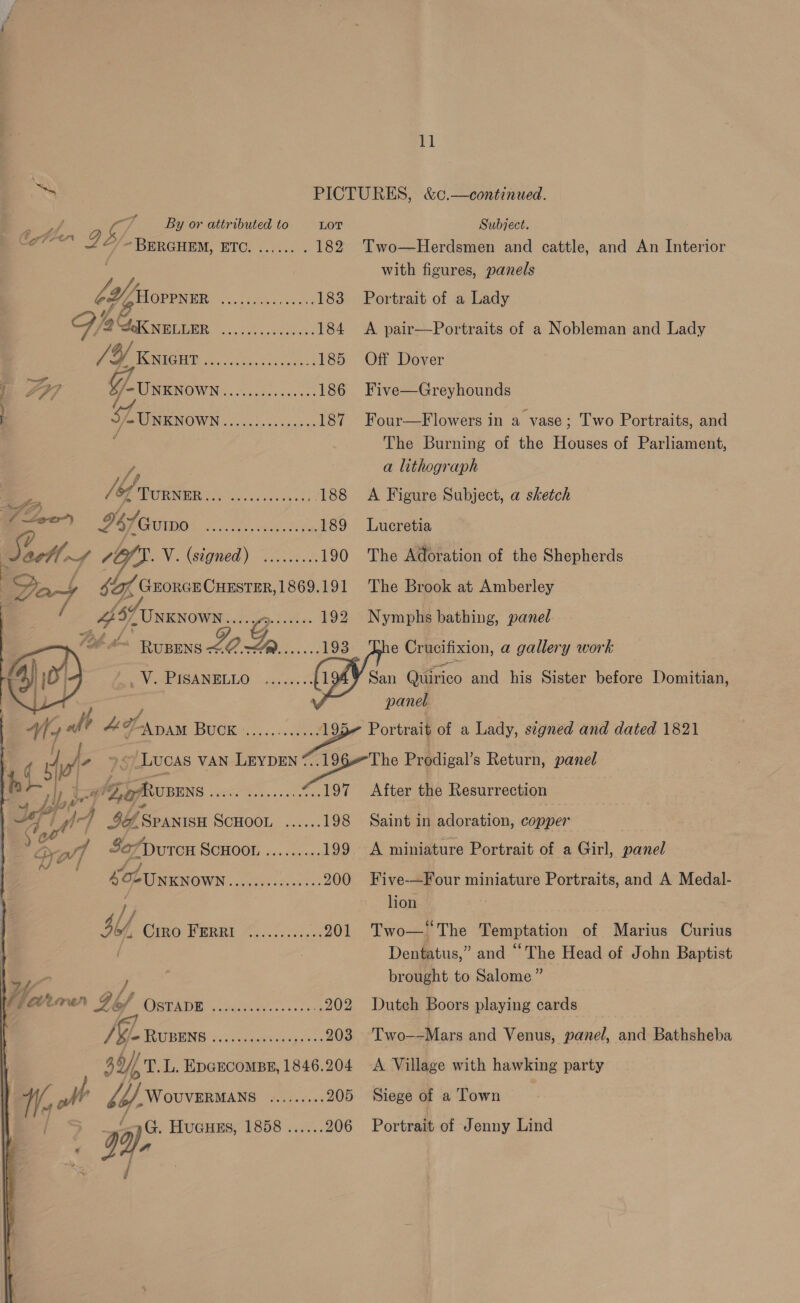 11
PICTURES, &c.—continued.
By or attributed to LOT Subject.
25/- BERGHEM, ETC. ...... . 182 Two—Herdsmen and cattle, and An Interior
with figures, panels
HOPPNER ............... 183 Portrait of a Lady
KNELLER ............... 184 A pair—Portraits of a Nobleman and Lady
KNIGHT ............... 185 Off Dover
UNKNOWN ............... 186 Five—Greyhounds
5/- UNKNOWN ............... 187 Four—Flowers in a vase; Two Portraits, and
The Burning of the Houses of Parliament,
a lithograph
TURNER ............... 188 A Figure Subject, a sketch
GUIDO ............... 189 Lucretia
T. V. (signed) ......... 190 The Adoration of the Shepherds
GEORGE CHESTER, 1869. 191 The Brook at Amberley
UNKNOWN ............ 192 Nymphs bathing, panel
RUBENS ....... 193 The Crucifixion, a gallery work
V. PISANELLO ........ 194 San Quirico and his Sister before Domitian,
panel
ADAM BUCK ............ 195 Portrait of a Lady, signed and dated 1821
LUCAS VAN LEYDEN ... 196 The Prodigal's Return, panel
RUBENS ............... 197 After the Resurrection
SPANISH SCHOOL ...... 198 Saint in adoration, copper
DUTCH SCHOOL ......... 199 A miniature Portrait of a Girl, panel
UNKNOWN ............... 200 Five—Four miniature Portraits, and A Medal-
lion
CIRO FERRI ............ 201 Two—"The Temptation of Marius Curius
Dentatus," and "The Head of John Baptist
brought to Salome"
OSTADE ............... 202 Dutch Boors playing cards
RUBENS ............... 203 Two—Mars and Venus, panel, and Bathsheba
T. L. EDGECOMBE, 1846. 204 A Village with hawking party
WOUVERMANS ......... 205 Siege of a Town
G. HUGHES, 1858 ...... 206 Portrait of Jenny Lind